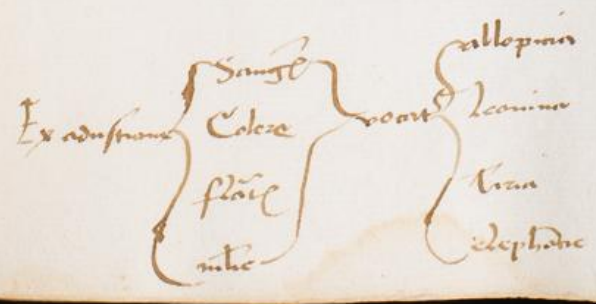 Ex adustione
Sang
Colere
flat
mlie
vocat
allopicia
leonina
tiria
elephãcie